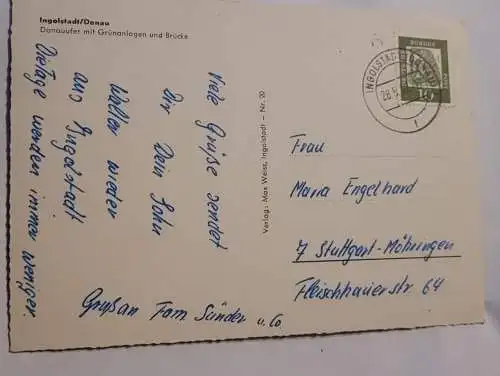 Ingolstadt/Donau
Donauufer mit Grünanlagen und Brücke
Viele Grüße sendet
Dir Dein Sohn
Walter wieder
aus Ingolstadt
Die Tage werden immer weniger.
Gruß an Fam Sünder u. Co
Verlag: Max Weiss, Ingolstadt - Nr. 20
INGOLSTADT
28.8
1
10
Frau
Maria Engelhard
7 Stuttgart-Möhringen
Fleischhauerstr. 64